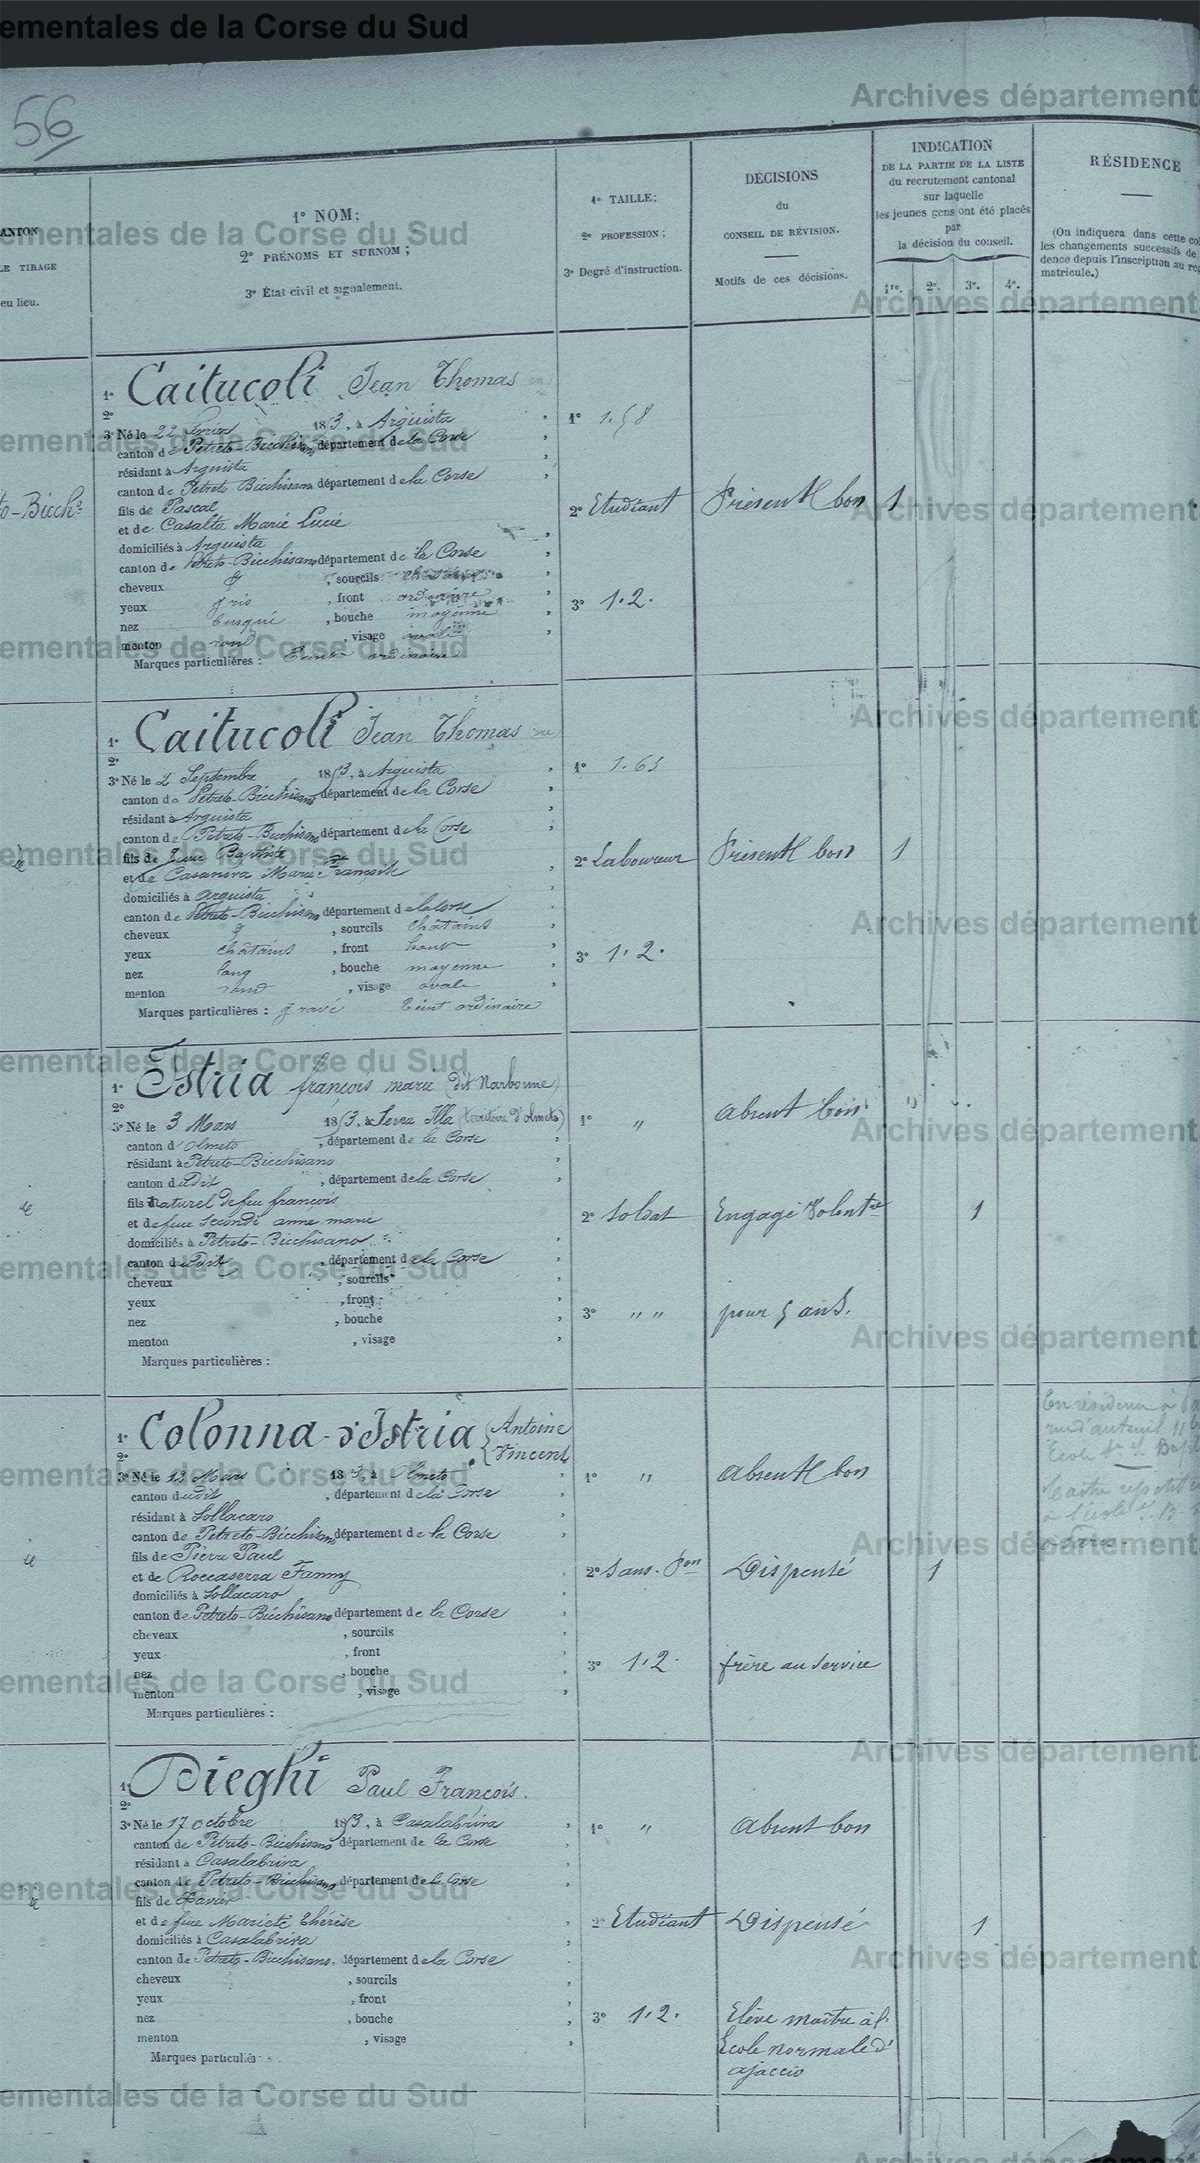 ementales de la Corse du Sud
Archives département
56
CANTON
LE TIRAGE
eu lieu.
1° NOM;
2° PRÉNOMS ET SURNOM;
3° État civil et signalement.
1° TAILLE;
2° PROFESSION;
3° Degré d'instruction.
DÉCISIONS
du
CONSEIL DE RÉVISION.
Motifs de ces décisions.
INDICATION
DE LA PARTIE DE LA LISTE
du recrutement cantonal
sur laquelle
les jeunes gens ont été placés
par
la décision du conseil.
1re. 2e. 3e. 4e.
RÉSIDENCE
(On indiquera dans cette co
les changements successifs de
dence depuis l'inscription au re
matricule.)
o-Bicch
1° Caitucoli Jean Thomas
2°
3° Né le 22 1853, à Arguista
canton de Petreto-Bicchisano département de la Corse
résidant à Arguista
canton de Petreto-Bicchisano département de la Corse
fils de Pascal
et de Casalta Marie Lucie
domiciliés à Arguista
canton de Petreto-Bicchisano département de la Corse
cheveux , sourcils
yeux gris , front ordinaire
nez busqué , bouche moyenne
menton rond , visage ovale
Marques particulières : Teint ordinaire
1° 1.58
2° Etudiant
3° 1.2.
Présent bon
1
1° Caitucoli Jean Thomas
2°
3° Né le 2 Septembre 1853, à Arguista
canton de Petreto-Bicchisano département de la Corse
résidant à Arguista
canton de Petreto-Bicchisano département de la Corse
fils de Baptiste
et de Casanova Marie
domiciliés à Arguista
canton de Petreto-Bicchisano département de la Corse
cheveux , sourcils châtains
yeux châtains , front haut
nez long , bouche moyenne
menton rond , visage ovale
Marques particulières : gravé Teint ordinaire
1° 1.63
2° Laboureur
3° 1.2.
Présent bon
1
1° Istria françois marie (dit Narbonne)
2°
3° Né le 3 Mars 1853, à Serra (territoire d'Olmeto)
canton d'Olmeto , département de la Corse
résidant à Petreto-Bicchisano
canton dudit , département de la Corse
fils Naturel de feu françois
et de feue Secondi anne marie
domiciliés à Petreto-Bicchisano
canton dudit , département de la Corse
cheveux , sourcils
yeux , front
nez , bouche
menton , visage
Marques particulières :
1° "
2° Soldat
3° " "
Absent bon
Engagé Volontre
pour 5 ans.
1
1° Colonna-d'Istria Antoine
2° Vincent
3° Né le 13 Mars 1853, à Olmeto
canton dudit , département de la Corse
résidant à Sollacaro
canton de Petreto-Bicchisano département de la Corse
fils de Pierre Paul
et de Roccaserra Fanny
domiciliés à Sollacaro
canton de Petreto-Bicchisano département de la Corse
cheveux , sourcils
yeux , front
nez , bouche
menton , visage
Marques particulières :
1° "
2° Sans. Pon
3° 1.2.
Absent bon
Dispensé
frère au service
1
En résidence à
rue d'auteuil
Ecole
1° Pieghi Paul François.
2°
3° Né le 17 octobre 1853, à Casalabriva
canton de Petreto-Bicchisano département de la Corse
résidant à Casalabriva
canton de Petreto-Bicchisano département de la Corse
fils de Xavier
et de feue Mariete Thérèse
domiciliés à Casalabriva
canton de Petreto-Bicchisano, département de la Corse
cheveux , sourcils
yeux , front
nez , bouche
menton , visage
Marques particulières
1° "
2° Etudiant
3° 1.2.
Absent bon
Dispensé
Elève maître à l'
Ecole normale d'
ajaccio
1